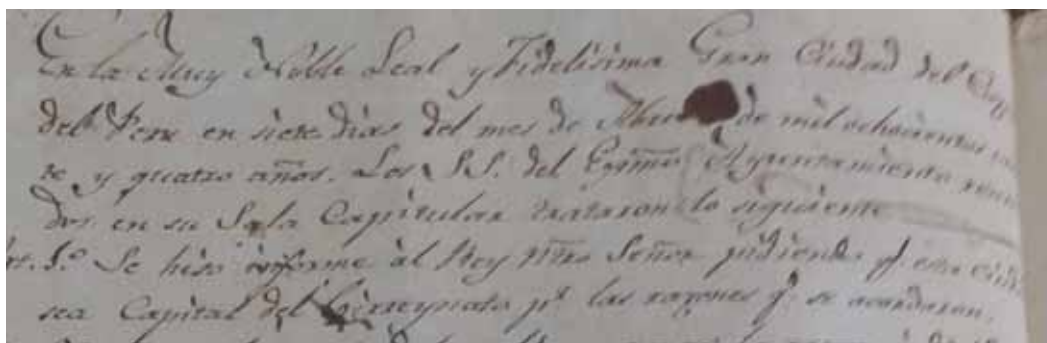 En la Muy Noble Leal y Fidelisima Gran Ciudad del Cuz
del Peru en siete dias del mes de de mil ochocientos
te y quatro años. Los S.S. del Exmo Ayuntamiento reuni
dos en su Sala Capitular trataron lo siguiente
Art. 1.º Se hiso informe al Rey Ntro Señor pidiendo q. esta Ciud
sea Capital del Virreynato pr. las razones q. se acordaron.